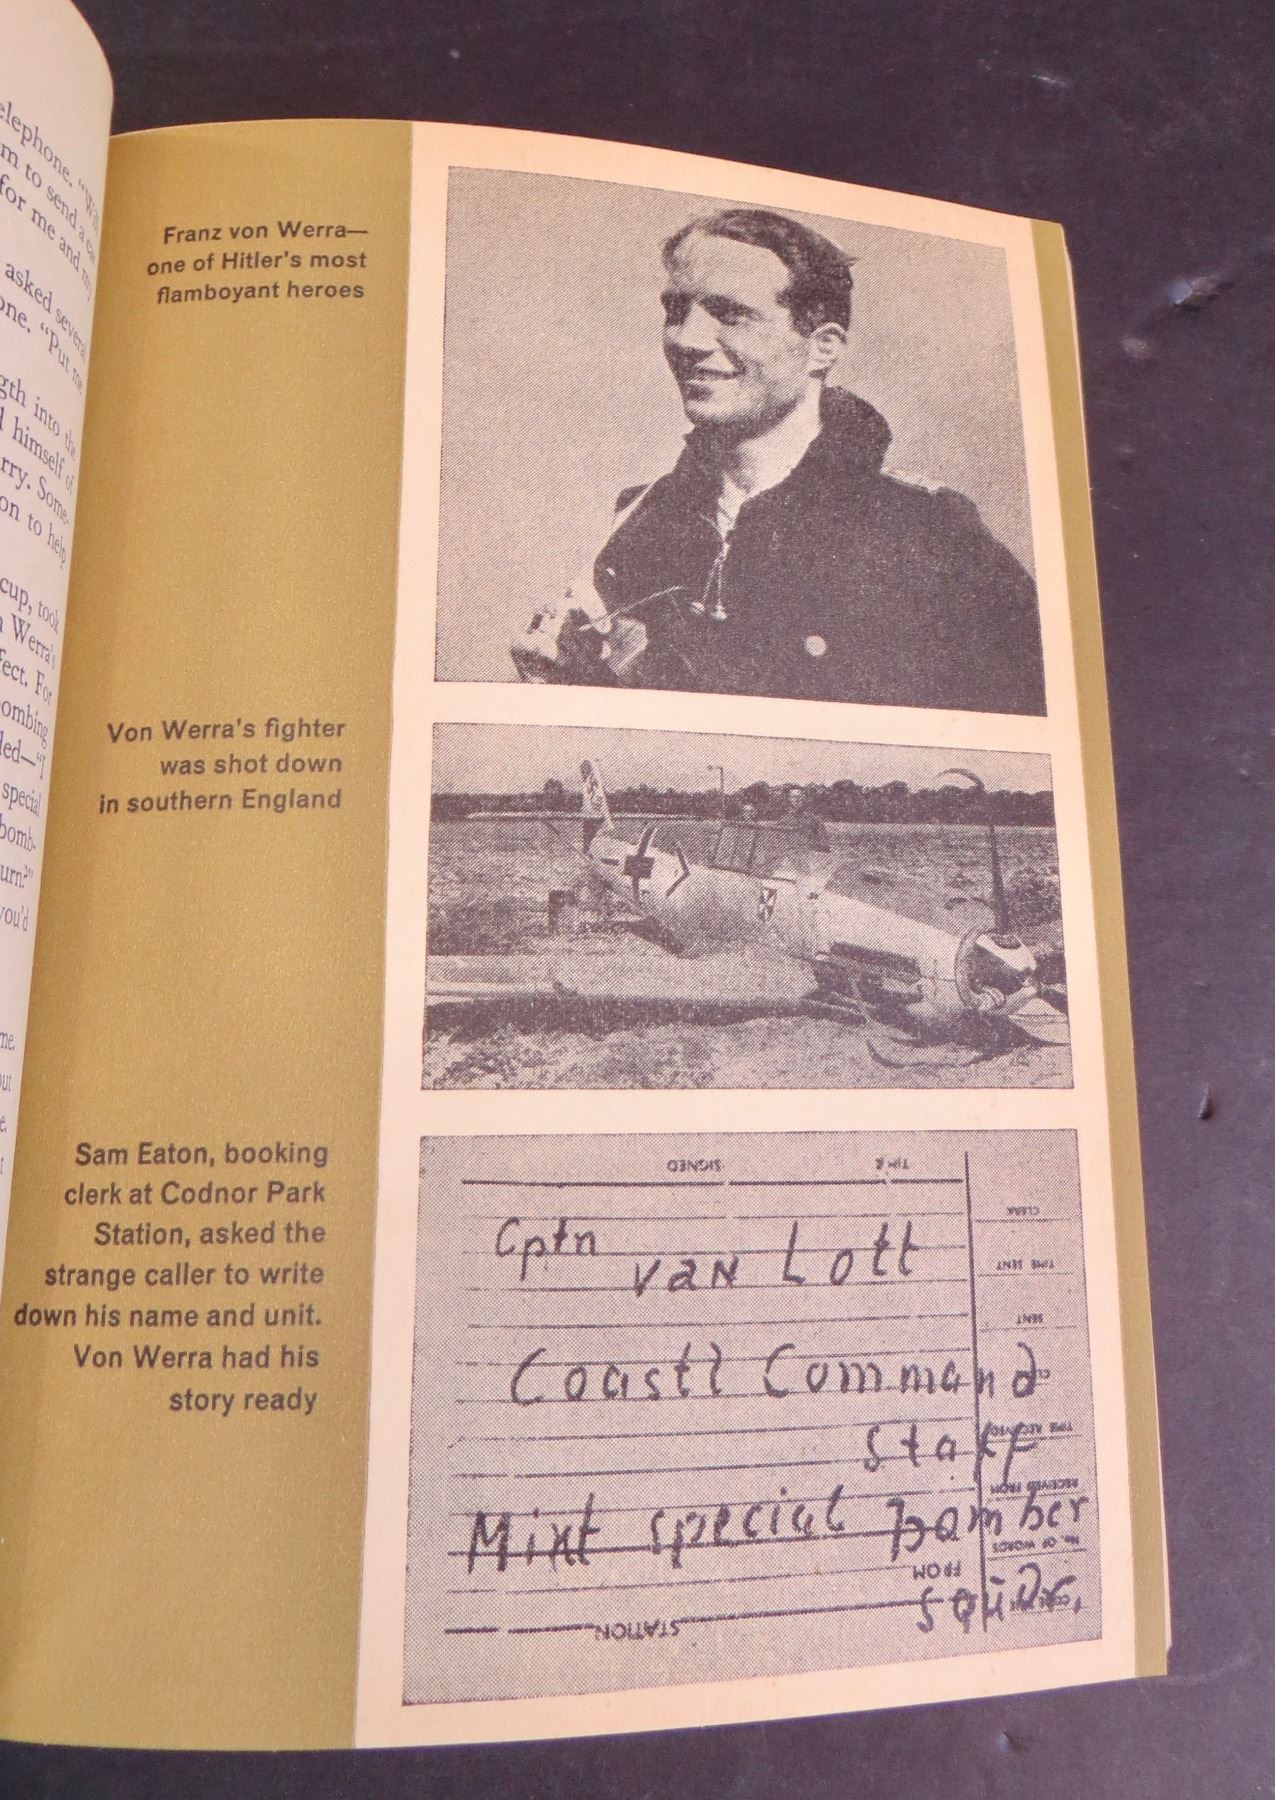 elephone. "Will
m to send a car
for me and my
asked several
one. "Put me
gth into the
l himself of
rry. Some-
on to help
cup, took
n Werra's
fect. For
ombing
led—"I
special
bomb-
urn?"
you'd
me.
out
e.
t
Franz von Werra—
one of Hitler's most
flamboyant heroes
Von Werra's fighter
was shot down
in southern England
Sam Eaton, booking
clerk at Codnor Park
Station, asked the
strange caller to write
down his name and unit.
Von Werra had his
story ready
SIGNED TIME
CLERK
Cptn
van Lott
TIME SENT
SENT
Coastl Command
Staff
TIME RECEIVED
RECEIVED FROM
Mixt special bomber
No. OF WORDS
FROM
squdr.
STATION